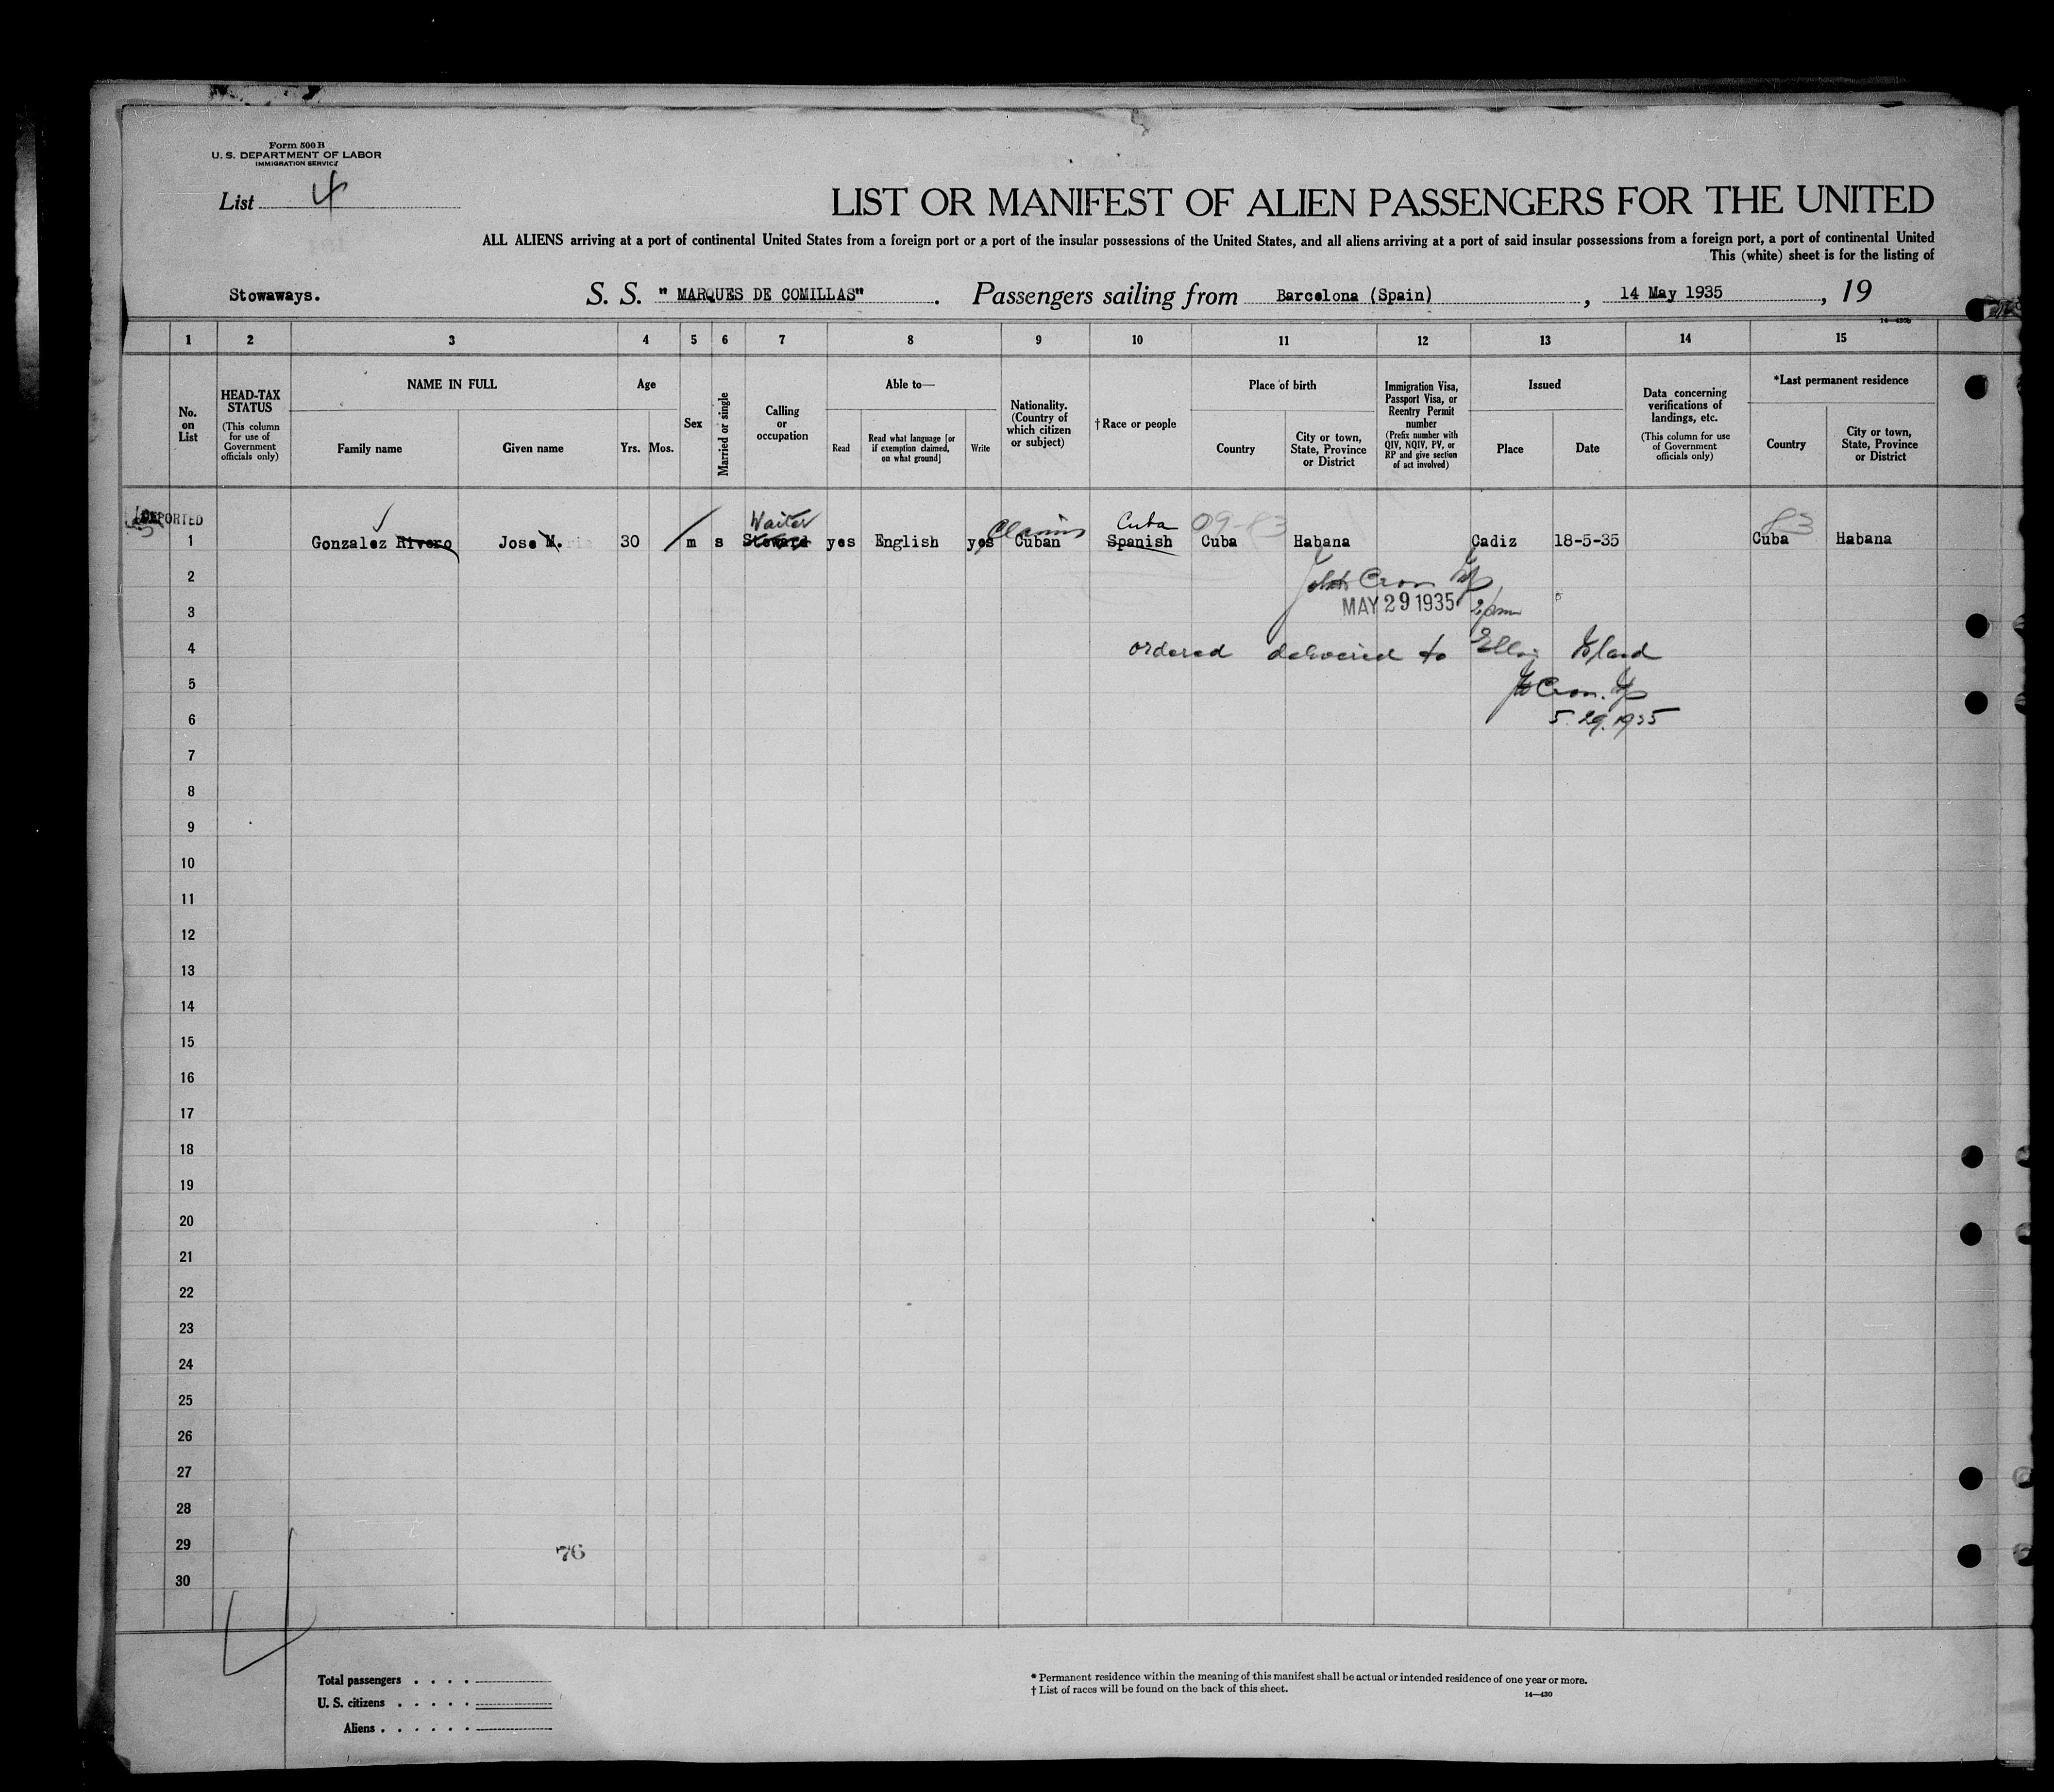 Form 500 B
U. S. DEPARTMENT OF LABOR
IMMIGRATION SERVICE
List 4
LIST OR MANIFEST OF ALIEN PASSENGERS FOR THE UNITED
ALL ALIENS arriving at a port of continental United States from a foreign port or a port of the insular possessions of the United States, and all aliens arriving at a port of said insular possessions from a foreign port, a port of continental United
This (white) sheet is for the listing of
Stowaways. S. S. " MARQUES DE COMILLAS" . Passengers sailing from Barcelona (Spain) , 14 May 1935 , 19
14—430b
1 2 3 4 5 6 7 8 9 10 11 12 13 14 15
No. on List
HEAD-TAX STATUS
(This column for use of Government officials only)
NAME IN FULL
Family name
Given name
Age
Yrs. Mos.
Sex
Married or single
Calling or occupation
Able to—
Read
Read what language [or if exemption claimed, on what ground]
Write
Nationality. (Country of which citizen or subject)
† Race or people
Place of birth
Country
City or town, State, Province or District
Immigration Visa, Passport Visa, or Reentry Permit number
(Prefix number with QIV, NQIV, PV, or RP and give section of act involved)
Issued
Place
Date
Data concerning verifications of landings, etc.
(This column for use of Government officials only)
*Last permanent residence
Country
City or town, State, Province or District
DEPORTED
Waiter Claims Cuba 09-83 83
1 Gonzalez Rivero Jose M. 30 m s Steward yes English yes Cuban Spanish Cuba Habana Cadiz 18-5-35 Cuba Habana
2
MAY 29 1935
3
4 ordered delivered to Ellis Island
5
6 5.29.1935
7
8
9
10
11
12
13
14
15
16
17
18
19
20
21
22
23
24
25
26
27
28
29
76
30
Total passengers . . . .
U. S. citizens . . . . .
Aliens . . . . . .
* Permanent residence within the meaning of this manifest shall be actual or intended residence of one year or more.
† List of races will be found on the back of this sheet.
14—430